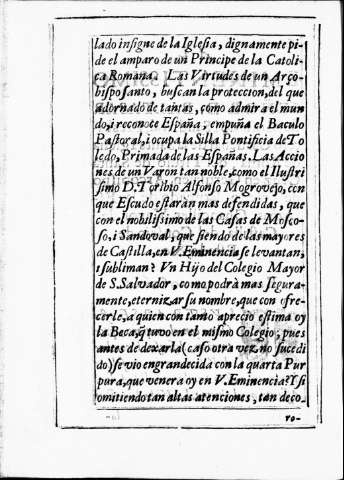 lado insigne de la Iglesia, dignamente pi-
de el amparo de un Principe de la Catoli-
ca Romana. Las Virtudes de un Arço-
bispo santo, buscan la proteccion, del que
adornado de tantas, como admira el mun
do, i reconoce España, empuña el Baculo
Pastoral, i ocupa la Silla Pontificia de To
ledo, Primada de las Españas. Las Accio
nes de un Varon tan noble, como el Ilustri
simo D. Toribio Alfonso Mogrovejo, con
que Escudo estaràn mas defendidas, que
con el nobilissimo de las Casas de Mosco-
so, i Sandoval, que siendo de las mayores
de Castilla, en V. Eminencia se levantan,
i subliman? Vn Hijo del Colegio Mayor
de S. Salvador, como podrà mas segura-
mente, eternizar su nombre, que con ofre-
cerle, a quien con tanto aprecio estima oy
la Beca, q̃ tuvo en el mismo Colegio; pues
antes de dexarla (caso otra vez no sucedi
do) se vio engrandecida con la quarta Pur
pura, que venera oy en V. Eminencia? I si
omitiendo tan altas atenciones, tan deco-
ro-